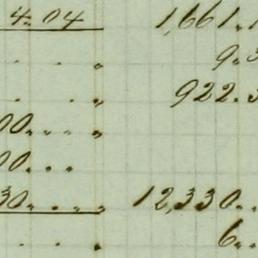 4.04 1,661.1
" 9.3
" 922.3
00 . . . "
00 . . .
30 . . . " 12,330 . .
" 6 . .